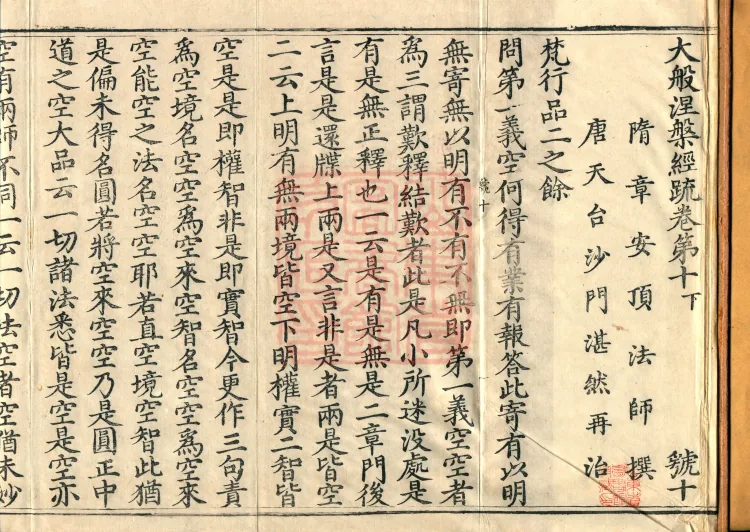 大般涅槃經疏卷第十下 號十
隋章安頂法師撰
唐天台沙門湛然再治
梵行品二之餘
問第一義空何得有業有報答此寄有以明
號十
無寄無以明有不有不無即第一義空空者
為三謂歎釋結歎者此是凡小所迷没處是
有是無正釋也一云是有是無是二章門後
言是是還牒上兩是又言非是者兩是皆空
二云上明有無兩境皆空下明權實二智皆
空是是即權智非是即實智今更作三句責
為空境名空空為空來空智名空空為空來
空能空之法名空空耶若真空境空智此猶
是偏未得名圓若將空來空空乃是圓正中
道之空大品云一切諸法悉皆是空是空亦
空有兩師不同一云一切法空者空猶未妙